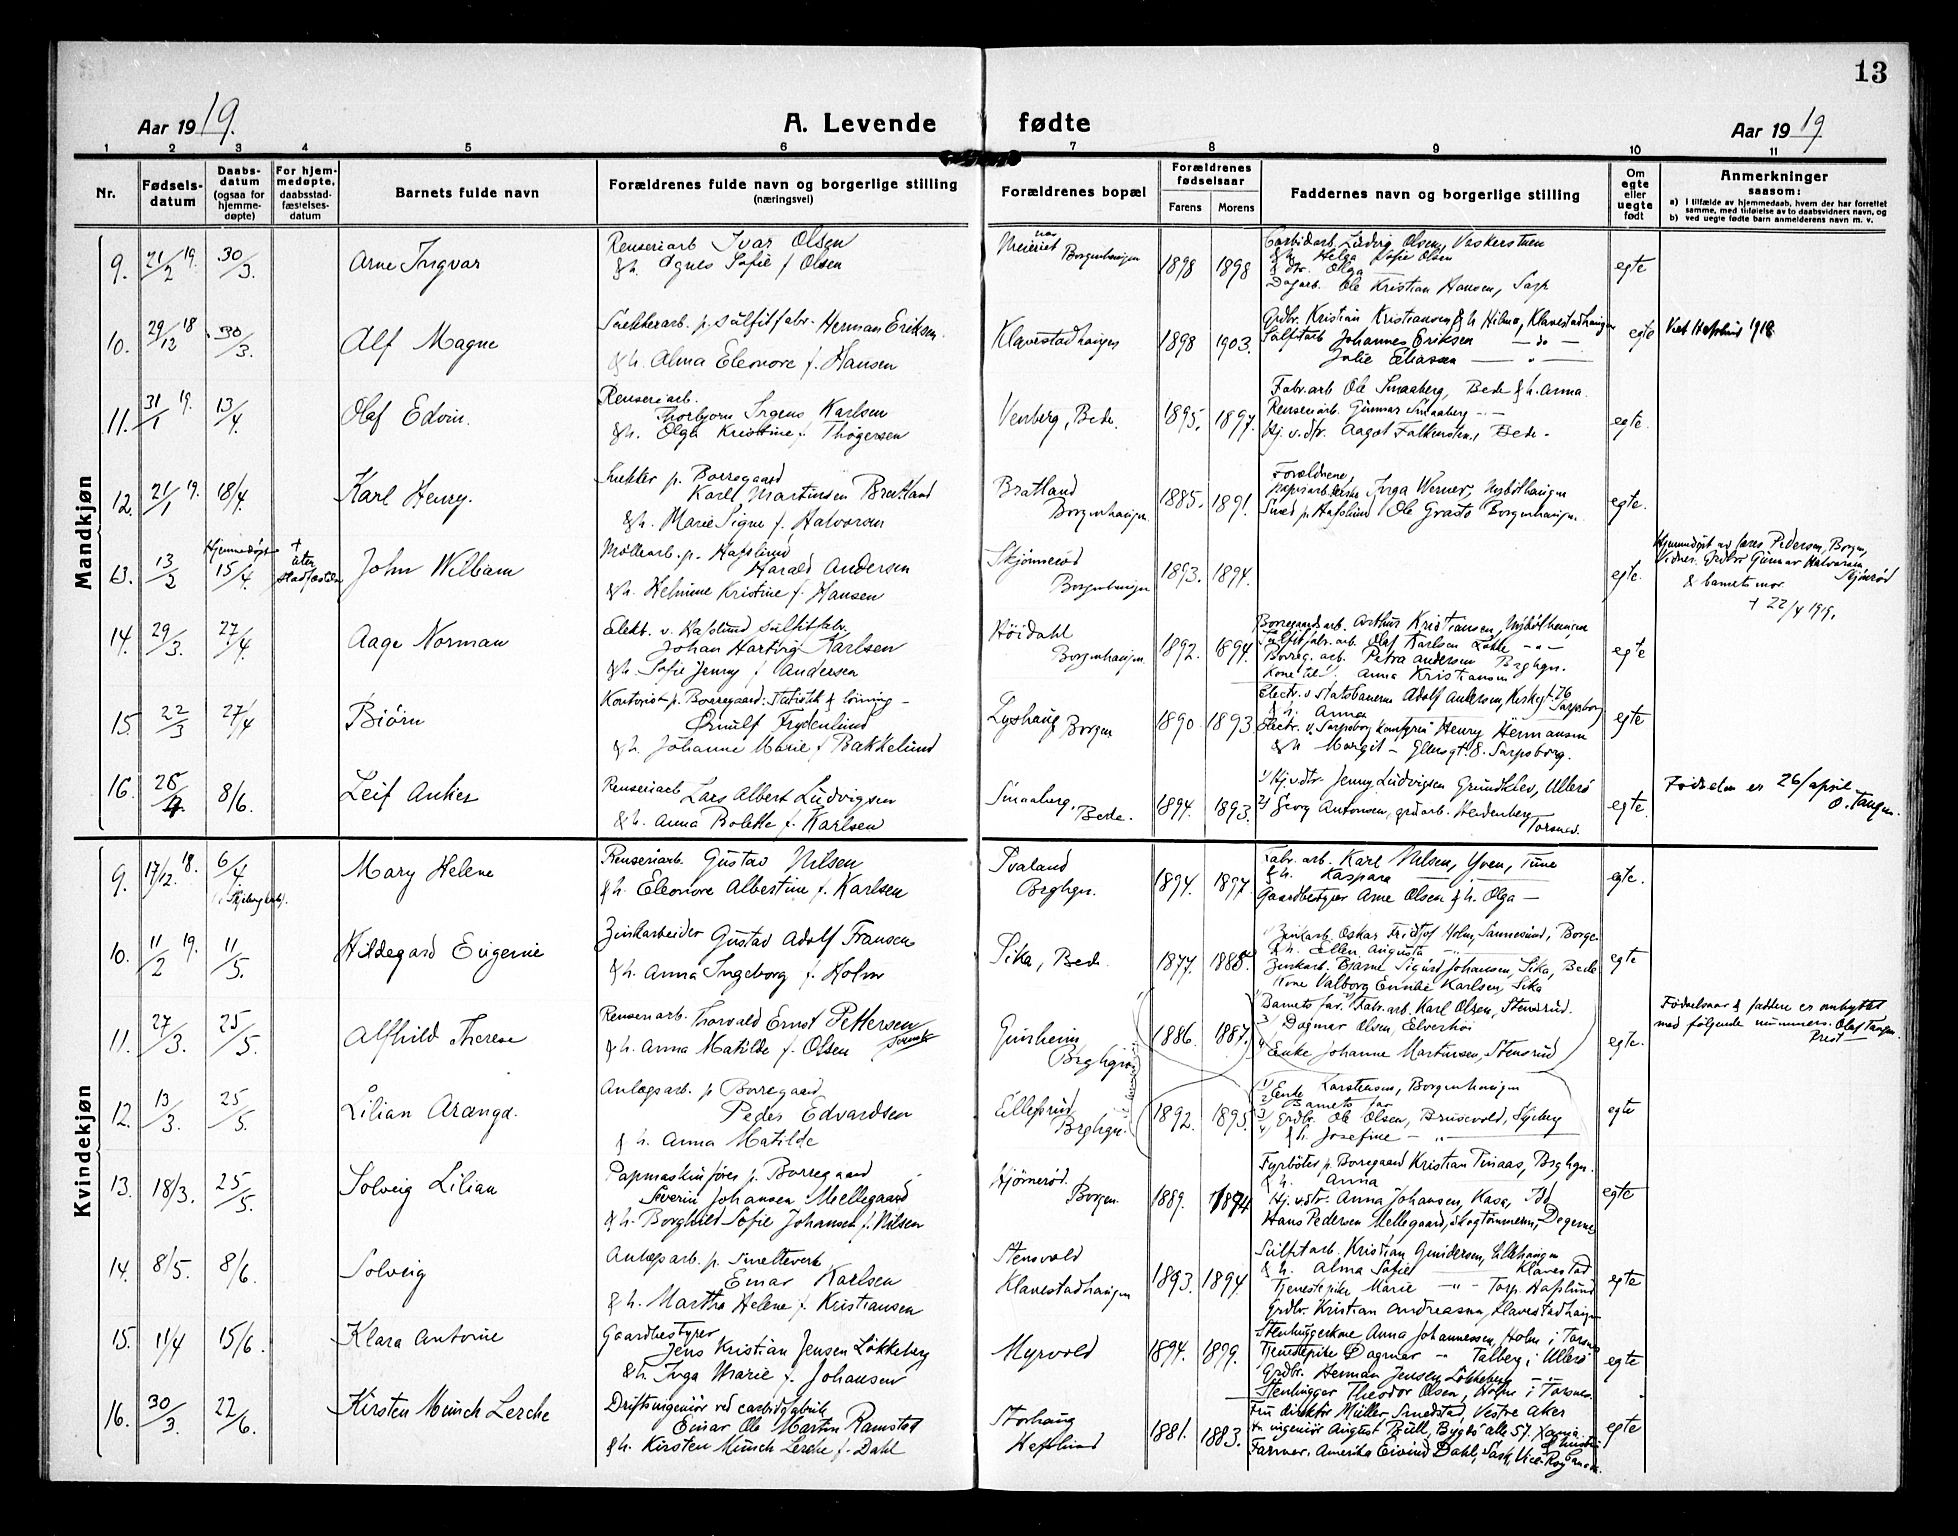 13
Aar 1919.
A. Levende fødte
Aar 1919
1 2 3 4 5 6 7 8 9 10 11
Nr.
Fødsels-
datum
Daabs-
datum
(ogsaa for
hjemme-
døpte)
For hjem-
medøpte,
daabsstad-
fæstelses-
datum
Barnets fulde navn
Forældrenes fulde navn og borgerlige stilling
(næringsvei)
Forældrenes bopæl
Forældrenes
fødselsaar
Farens Morens
Faddernes navn og borgerlige stilling
Om
egte
eller
uegte
født
Anmerkninger
saasom:
a) I tilfælde av hjemmedaab, hvem der har forrettet
samme, med tilføielse av to daabsvidners navn, og
b) ved uegte fødte barn anmelderens navn m. v.
Mandkjøn
9. 21/2 19. 30/3. Arne Ingvar
Renseriarb Ivar Olsen
& h. Agnes Sofie f. Olsen
Borgenhaugen
1898 1898
Carbidarb. Ludvig Olsen,
& h. Helga Sofie Olsen
& dtr. Olga
Dagarb. Ole Kristian Hansen, Sarp.
egte
10. 29/12 18 30/3. Alf Magne
p. sulfitfabr. Herman Eriksen
& h. Alma Eleonore f. Hansen
Klavestadhaugen
1898 1903.
Grdbr. Kristian Kristiansen & h. Hilma, Klavestadhaugen
Sulfitarb Johannes Eriksen — do —
Julie Eliassen — " —
egte
11. 31/1 19. 13/4. Olaf Edvin.
Renseriarb.
Thorbjørn Karlsen
& h. Olga Kristine f. Thøgersen
Venberg, Bede.
1895. 1897.
Fabr. arb Ole Smaaberg, Bede & h. Anna.
Renseriarb. Gunnar Smaaberg - " -
Hj. v. dtr. Aagot Falkensten, Bede.
egte.
12. 21/1 19. 18/4. Karl Henry.
p. Borregaard
Karl Martinsen Bratland
& h. Marie Signe f. Halvorsen
Bratland
Borgenhaugen.
1885. 1891.
Forældrene,
Inga Werner, Nybölhaugen
Smed p. Hafslund Ole Grasto Borgenhaugen.
egte.
13. 13/2 Hjemmedøpt 15/4. † uten stadfæstelse John William
Møllearb. p. Hafslund
Harald Andersen
& h. Helmine Kristine f. Hansen
Skjønnerød
Borgenhaugen
1893. 1894.
egte.
Hjemmedøpt av Pedersen, Borgen,
Vidner: Gunnar Halvorsen
& barnets mor
† 22/4 1919.
14. 29/3. 27/4. Aage Norman
Elekt. v. Hafslund sulfitfabr.
Johan Hartvig Karlsen
& h. Sofie Jenny f. Andersen
Höidahl
Borgenhaugen.
1892. 1894.
Borregaards arb. Arthur Kristiansen, Nybölhaugen
Sulfitfabr. arb. Olaf Karlsen Løkke - " -
Borreg. arb. Petra Andersen Brghgn.
Kone til Anna Kristiansen
egte
15. 22/3 27/4 Bjørn
Kontorist p. Borregaard: Statistik & lönning —
Ørnulf Frydenlund
& h. Johanne Marie f. Bakkelund
Lyshaug Borgen
1890. 1893
Electr. v. Statsbanerne Adolf Andersen, Sarpsborg
& h. Anna
Electr. v. Sarpsborg Henry Hermansen
& h. Margit — Glengst. 8. Sarpsborg.
egte
16. 8/6. Leif Anker
Renseriarb Lars Albert Ludvigsen
& h. Anna Bolette f. Karlsen
Smaaberg, Bede.
1894. 1893.
1/ Hj. v. dtr. Jenny Ludvigsen Grundklev, Ullerø
2/ Georg Antonsen, grdarb. Heidenberg
Torsnes.
egte
Fødselen er 26/april
O. Tangen.
Kvindekjøn
9. 17/12. 18. 6/4 Mary Helene
Renseriarb. Gustav Nilsen
& h. Eleonore Albertine f. Karlsen
Tvaland
Brghgn.
1894. 1897.
Fabr. arb. Karl Nilsen, Yven, Tune
& h. Kaspara
Gaardbestyrer Arne Olsen & h. Olga —
egte.
10. 11/2 19. 11/5. Hildegard Eugenie
Zinkarbeider Gustav Adolf Fransen
& h. Anna Ingeborg f. Holm
Sika, Bede.
1877. 1885.
Zinkarb. Oskar Fridtjof Holm, Sannesund, Borge
& h. Ellen Augusta
Zinkarb. Bjarne Sigurd Johansen, Sika, Bede
Kone Valborg Emilie Karlsen, Sika
egte
11. 27/3. 25/5. Alfhild Therese
Renseriarb. Thorvald Ernst Pettersen
& h. Anna Matilde f. Olsen
Brghgn.
1886. 1887.
1/ Barnets far 2/ Fabr. arb. Karl Olsen, Stensrud.
3/ Dagmar Olsen, Elverhöi
4/ Enke Johanne Martinsen, Stensrud
egte.
Fødselsaar & faddere er ombyttet
med følgende nummers. Olaf Tangen
Prest
12. 13/3. 25/5. Lilian Aranga.
Anlægsarb. p Borregaard
Peder Edvardsen
& h. Anna Matilde
Brghgn.
1892. 1895.
1/ Enke Karstensen, Borgenhaugen
2/ Barnets far
3/ Grdbr. Ole Olsen, Brusevold, Skjeberg
4/ & h. Josefine — " —
egte
13. 18/3. 25/5. Solveig Lilian
Papmaskinfører p. Borregaard
Severin Johansen Mellegaard
& h. Borghild Sofie Johansen f. Nilsen
Hjørnerød.
Borgen.
1889. 1894
Fyrböter p. Borregaard Kristian Tinaas, Brghgn.
& h. Anna
Hj. v. dtr. Anna Johansen, Kasa, Id
Hans Pedersen Mellegaard, skogtömmerm., Degernes
egte
14. 8/5. 8/6. Solveig
Anlægsarb. p. Smelteverk
Einar Karlsen
& h. Martha Helene f. Kristiansen
Stensvold
Klavestadhaugen
1893. 1894.
Sulfitarb. Kristian Gundersen,
& h. Alma Sofie Klavestad
Tjenestepike Marie - " - Torp Hafslund
Grdbr. Kristian Andreassen, Klavestadhaugen
egte
15. 11/4 15/6. Klara Antonie
Gaardbestyrer
Jens Kristian Jensen Løkkeberg
& h. Inga Marie f. Johansen
Myrvold
1894. 1899.
Stenhuggerkone Anna Johannessen, Holm i Torsnes
Tjenestepike Dagmar - " - Talberg i Ullerø
Grdbr. Herman Jensen Løkkeberg
Stenhugger Theodor Olsen, Holm i Torsnes.
egte
16. 30/3. 22/6. Kirsten Munch Lerche
Driftsingeniör ved carbidfabrik
Einar Ole Martin Ramstad
& h. Kirsten Munch Lerche f. Dahl
Storhaug
Hafslund
1881. 1883.
Fru direktör Müller, Smedstad, Vestre Aker
Fr. ingeniör August Bull, Bygdö allé 57,
Farmer, Amerika Eivind Dahl, Sask,
egte